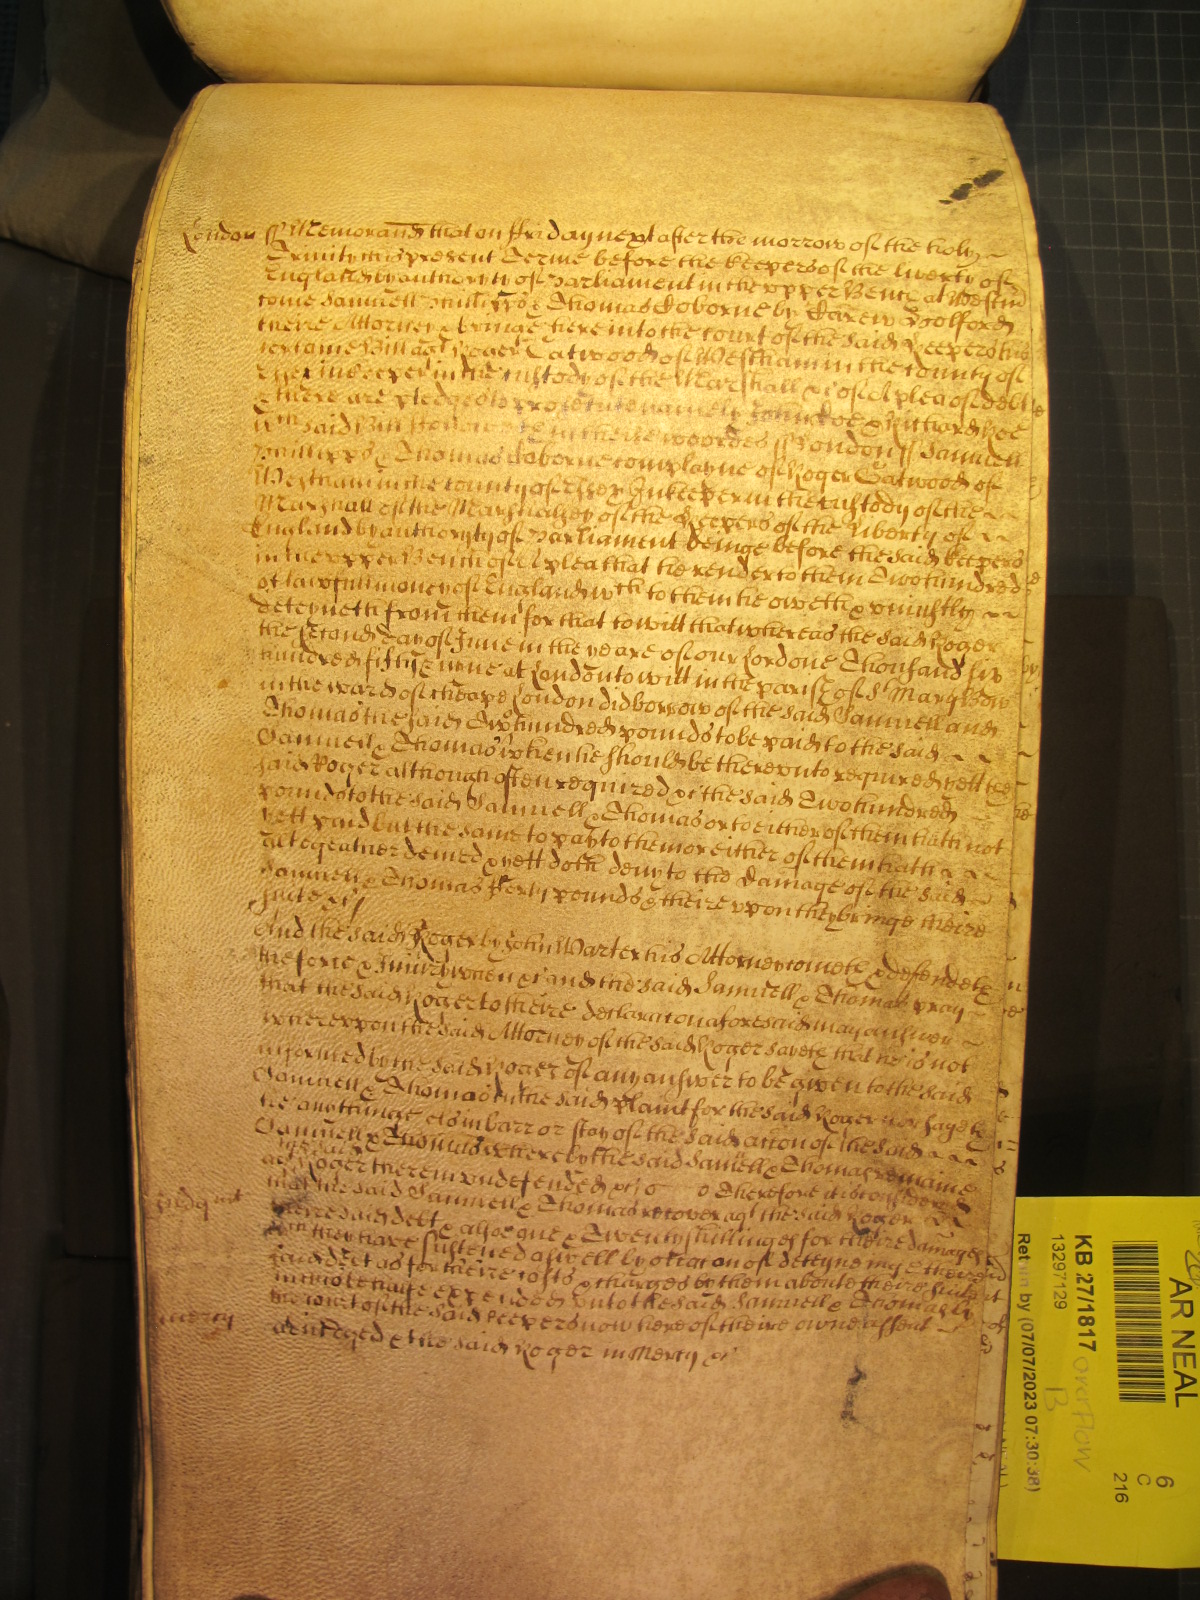 London ss Memorand that on Friday next after the morrow of the holy
Trinity this present Terme before the keepers of the liberty of
England by authority of Parliament in the upper Bench at Westm
come Samuell Phillipps & Thomas Osborne by Carew
theire Attorney & bringe here into the court of the said Keepers this
certaine Bill agt Roger Catwood of Westham in the county of
Essex Inkeeper in the custody of the Marshall &c of A plea of debt
& there are pledges to prosecute namely John Doe & Richard Roe
wch said Bill followeth in theise woordes ss London ss Samuell
Phillipps & Thomas Osborne complayne of Roger Catwood of
Westham in the county of Essex Inkeeper in the custody of the
Marshall of the Marshalsey of the Keepers of the Liberty of
England by authority of Parliament beinge before the said keepers
in the upper Bench of A plea that he render to them Two hundred
of lawfull money of England wch to them he oweth & uniustly
deteyneth from them for that to witt that whereas the said Roger
the second day of June in the yeare of our Lord one Thousand six
hundred fiftye nyne at London to witt in the parish of St Mary Bow
in the ward of Cheape London did borrow of the said Samuell and
Thomas the said Two hundred pounds to be paid to the said
Samuell & Thomas when he should be thereunto required yett the
said Roger although often required &c the said Two hundred
pounds to the said Samuell & Thomas or to either of them hath not
yett paid but the same to pay to them or either of them hath
altogeather denied & yett doth deny to the damage of the said
Samuell & Thomas Forty pounds & thereupon they bringe theire
suite &c
And the said Roger by John Warter his Attorney cometh & defendeth
the force & Iniury when &c and the said Samuell & Thomas pray
that the said Roger to theire declaracon aforesaid may answer
whereupon the said Attorney of the said Roger sayeth that he is not
informed by the said Roger of any answer to be given to the said
Samuell & Thomas in the said plaint for the said Roger nor sayeth
he any thinge els in barr or stay of the said accon of the said
Samuell & Thomas whereby the said Samuell & Thomas remaine
agt the said Roger therein undefended &c Therefore it is considered
that the said Samuell & Thomas recover agt the said Roger
Judgmt
theire said debt & alsoe Twenty shillinges for theire damages
wch they have susteyned aswell by occacon of deteyninge theire
said debt as for theire costs & charges by them aboute theire suite
in this behalfe expended unto the said Samuell & Thomas by
the court of the said keepers now here of theire owne assent
mercy
adiudged & the said Roger in Mercy &c
AR NEAL
6
C
216
KB 27/1817
13297129
overflow
B
Return by (07/07/2023 07:30:38)